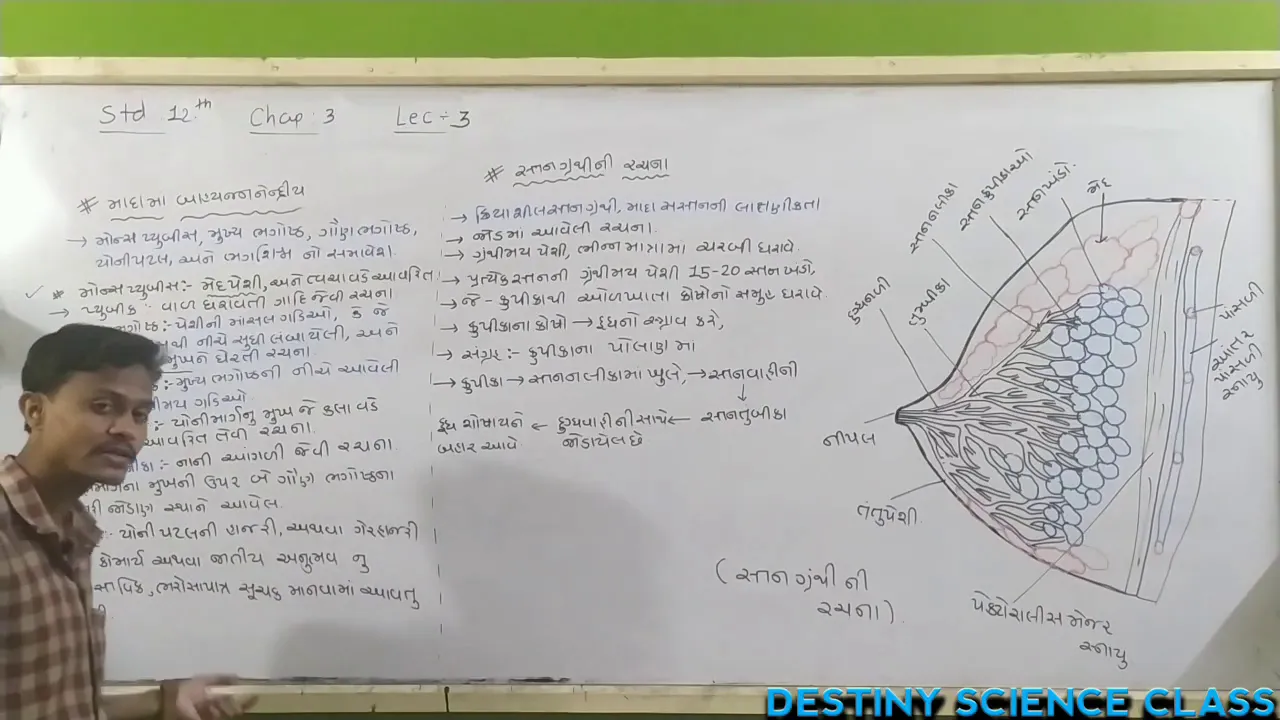 Std 12.th Chap : 3 Lec ÷ 3
# માદામાં બાહ્યજનનેન્દ્રીય
→ મોન્સ પ્યુબીસ, મુખ્ય ભગોષ્ઠ, ગૌણ ભગોષ્ઠ,
યોનીપટલ, અને ભગશિશ્ન નો સમાવેશ.
* મોન્સ પ્યુબીસ :- મેદપેશી, અને ત્વચા વડે આવરિત
→ પ્યુબીક વાળ ધરાવતી ગાદિ જેવી રચના
:- પેશીની માંસલ ગડિઓ, કે જે
નીચે સુધી લંબાયેલી, અને
મુખને ઘેરતી રચના.
:- મુખ્ય ભગોષ્ઠની નીચે આવેલી
ગડિઓ.
:- યોનીમાર્ગનુ મુખ જે કલા વડે
આવરિત તેવી રચના.
:- નાની આંગળી જેવી રચના.
મુખની ઉપર બે ગૌણ ભગોષ્ઠના
જોડાણ સ્થાને આવેલ.
યોનીપટલની હાજરી, અથવા ગેરહાજરી
કૌમાર્ય અથવા જાતીય અનુભવ નુ
ભરોસાપાત્ર સૂચક માનવામાં આવતુ
# સ્તનગ્રંથીની રચના
→ ક્રિયાશીલ સ્તનગ્રંથી, માદા સસ્તનની લાક્ષણીકતા
→ જોડમાં આવેલી રચના.
→ ગ્રંથીમય પેશી, ભીન્ન માત્રામાં ચરબી ધરાવે.
→ પ્રત્યેક સ્તનની ગ્રંથીમય પેશી 15-20 સ્તન ખંડો,
→ જે - કુપીકાથી ઓળખાતા કોષોનો સમૂહ ધરાવે.
→ કુપીકાના કોષો → દૂધનો સ્ત્રાવ કરે,
→ સંગ્રહ :- કુપીકાના પોલાણ માં
→ કુપીકા → સ્તનનલીકામાં ખુલે, → સ્તનવાહીની
↓
દૂધ શોષાયને ← દુગ્ધવાહીની સાથે ← સ્તનતુંબીકા
બહાર આવે. જોડાયેલ છે
સ્તનનલીકા
સ્તનકુપીકાઓ
સ્તનખંડો.
મેદ
દુગ્ધનળી
નીપલ
તંતુપેશી.
પાંસળી
આંતર
પાંસળી
સ્નાયુ
પેક્ટોરાલીસ મેજર
સ્નાયુ
(સ્તન ગ્રંથી ની
રચના).
DESTINY SCIENCE CLASS